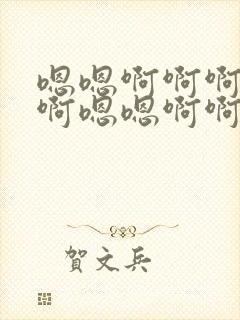 嗯嗯啊啊啊
啊嗯嗯啊啊
賀文兵